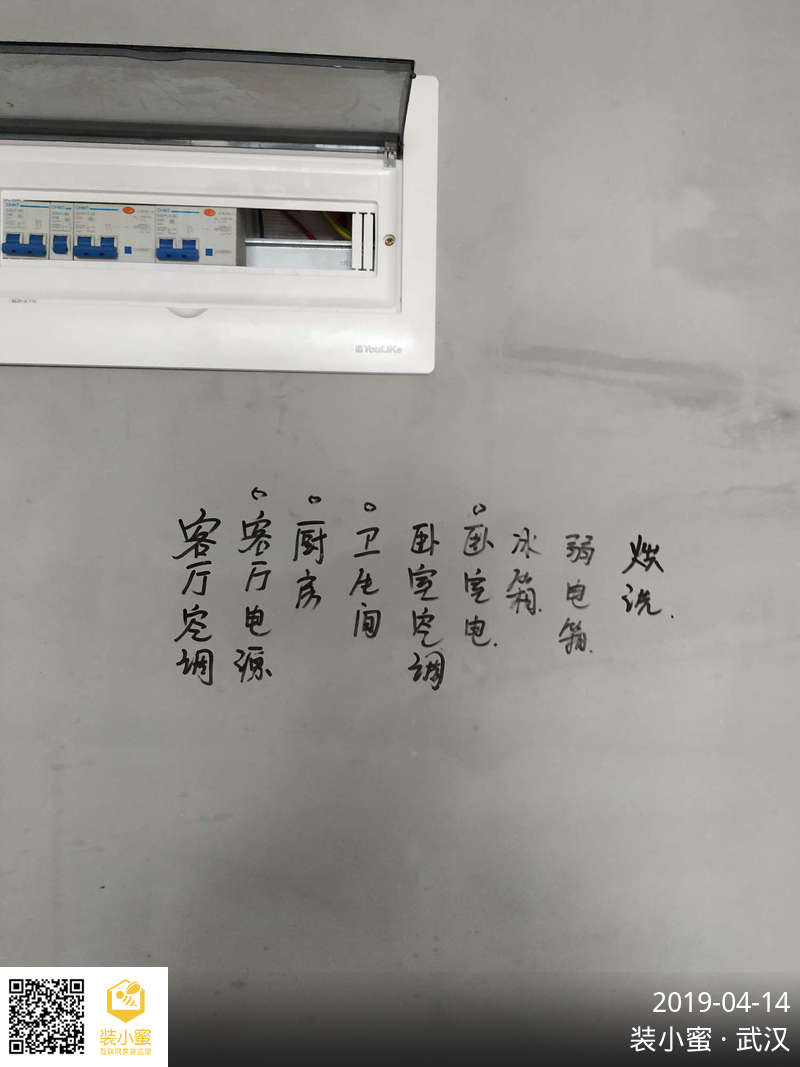 CHNT
CHNT
CHNT
CHNT
YouLiKe
客厅空调
客厅电源
厨房
卫生间
卧室空调
卧室电.
冰箱.
弱电箱.
烘洗.
装小蜜
互联网家装监理
2019-04-14
装小蜜·武汉